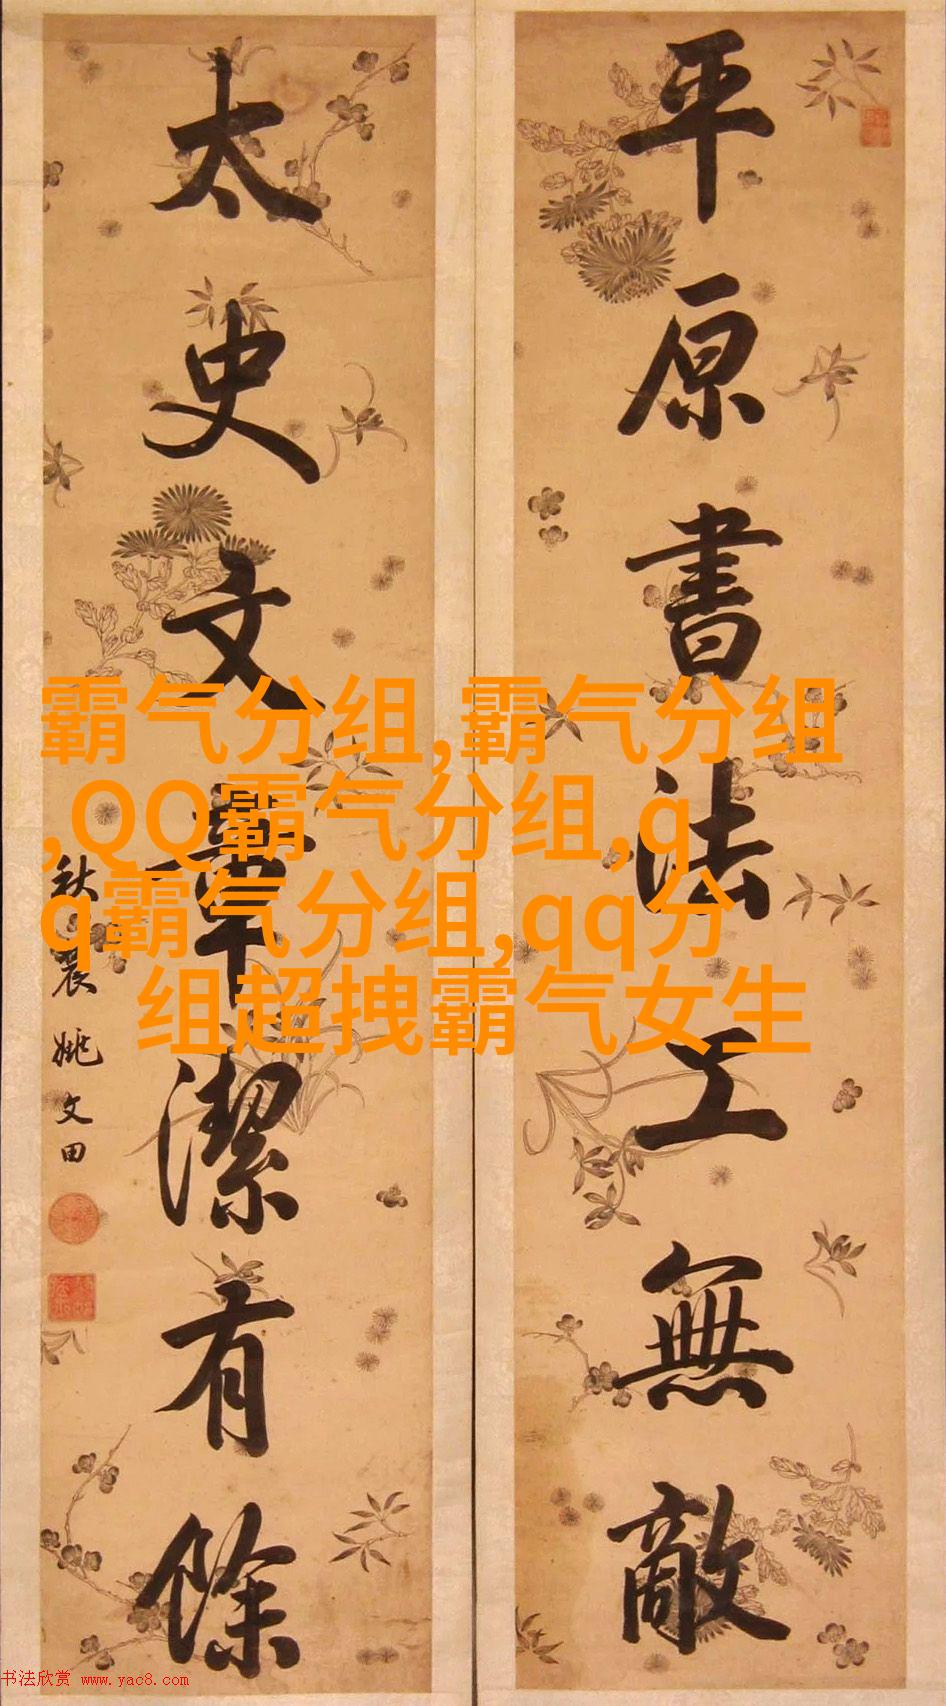 平原書法工無敵
太史文章潔有餘
秋農姚文田
霸气分组,霸气分组
,QQ霸气分组,q
q霸气分组,qq分
组超拽霸气女生
书法欣赏 www.yac8.com